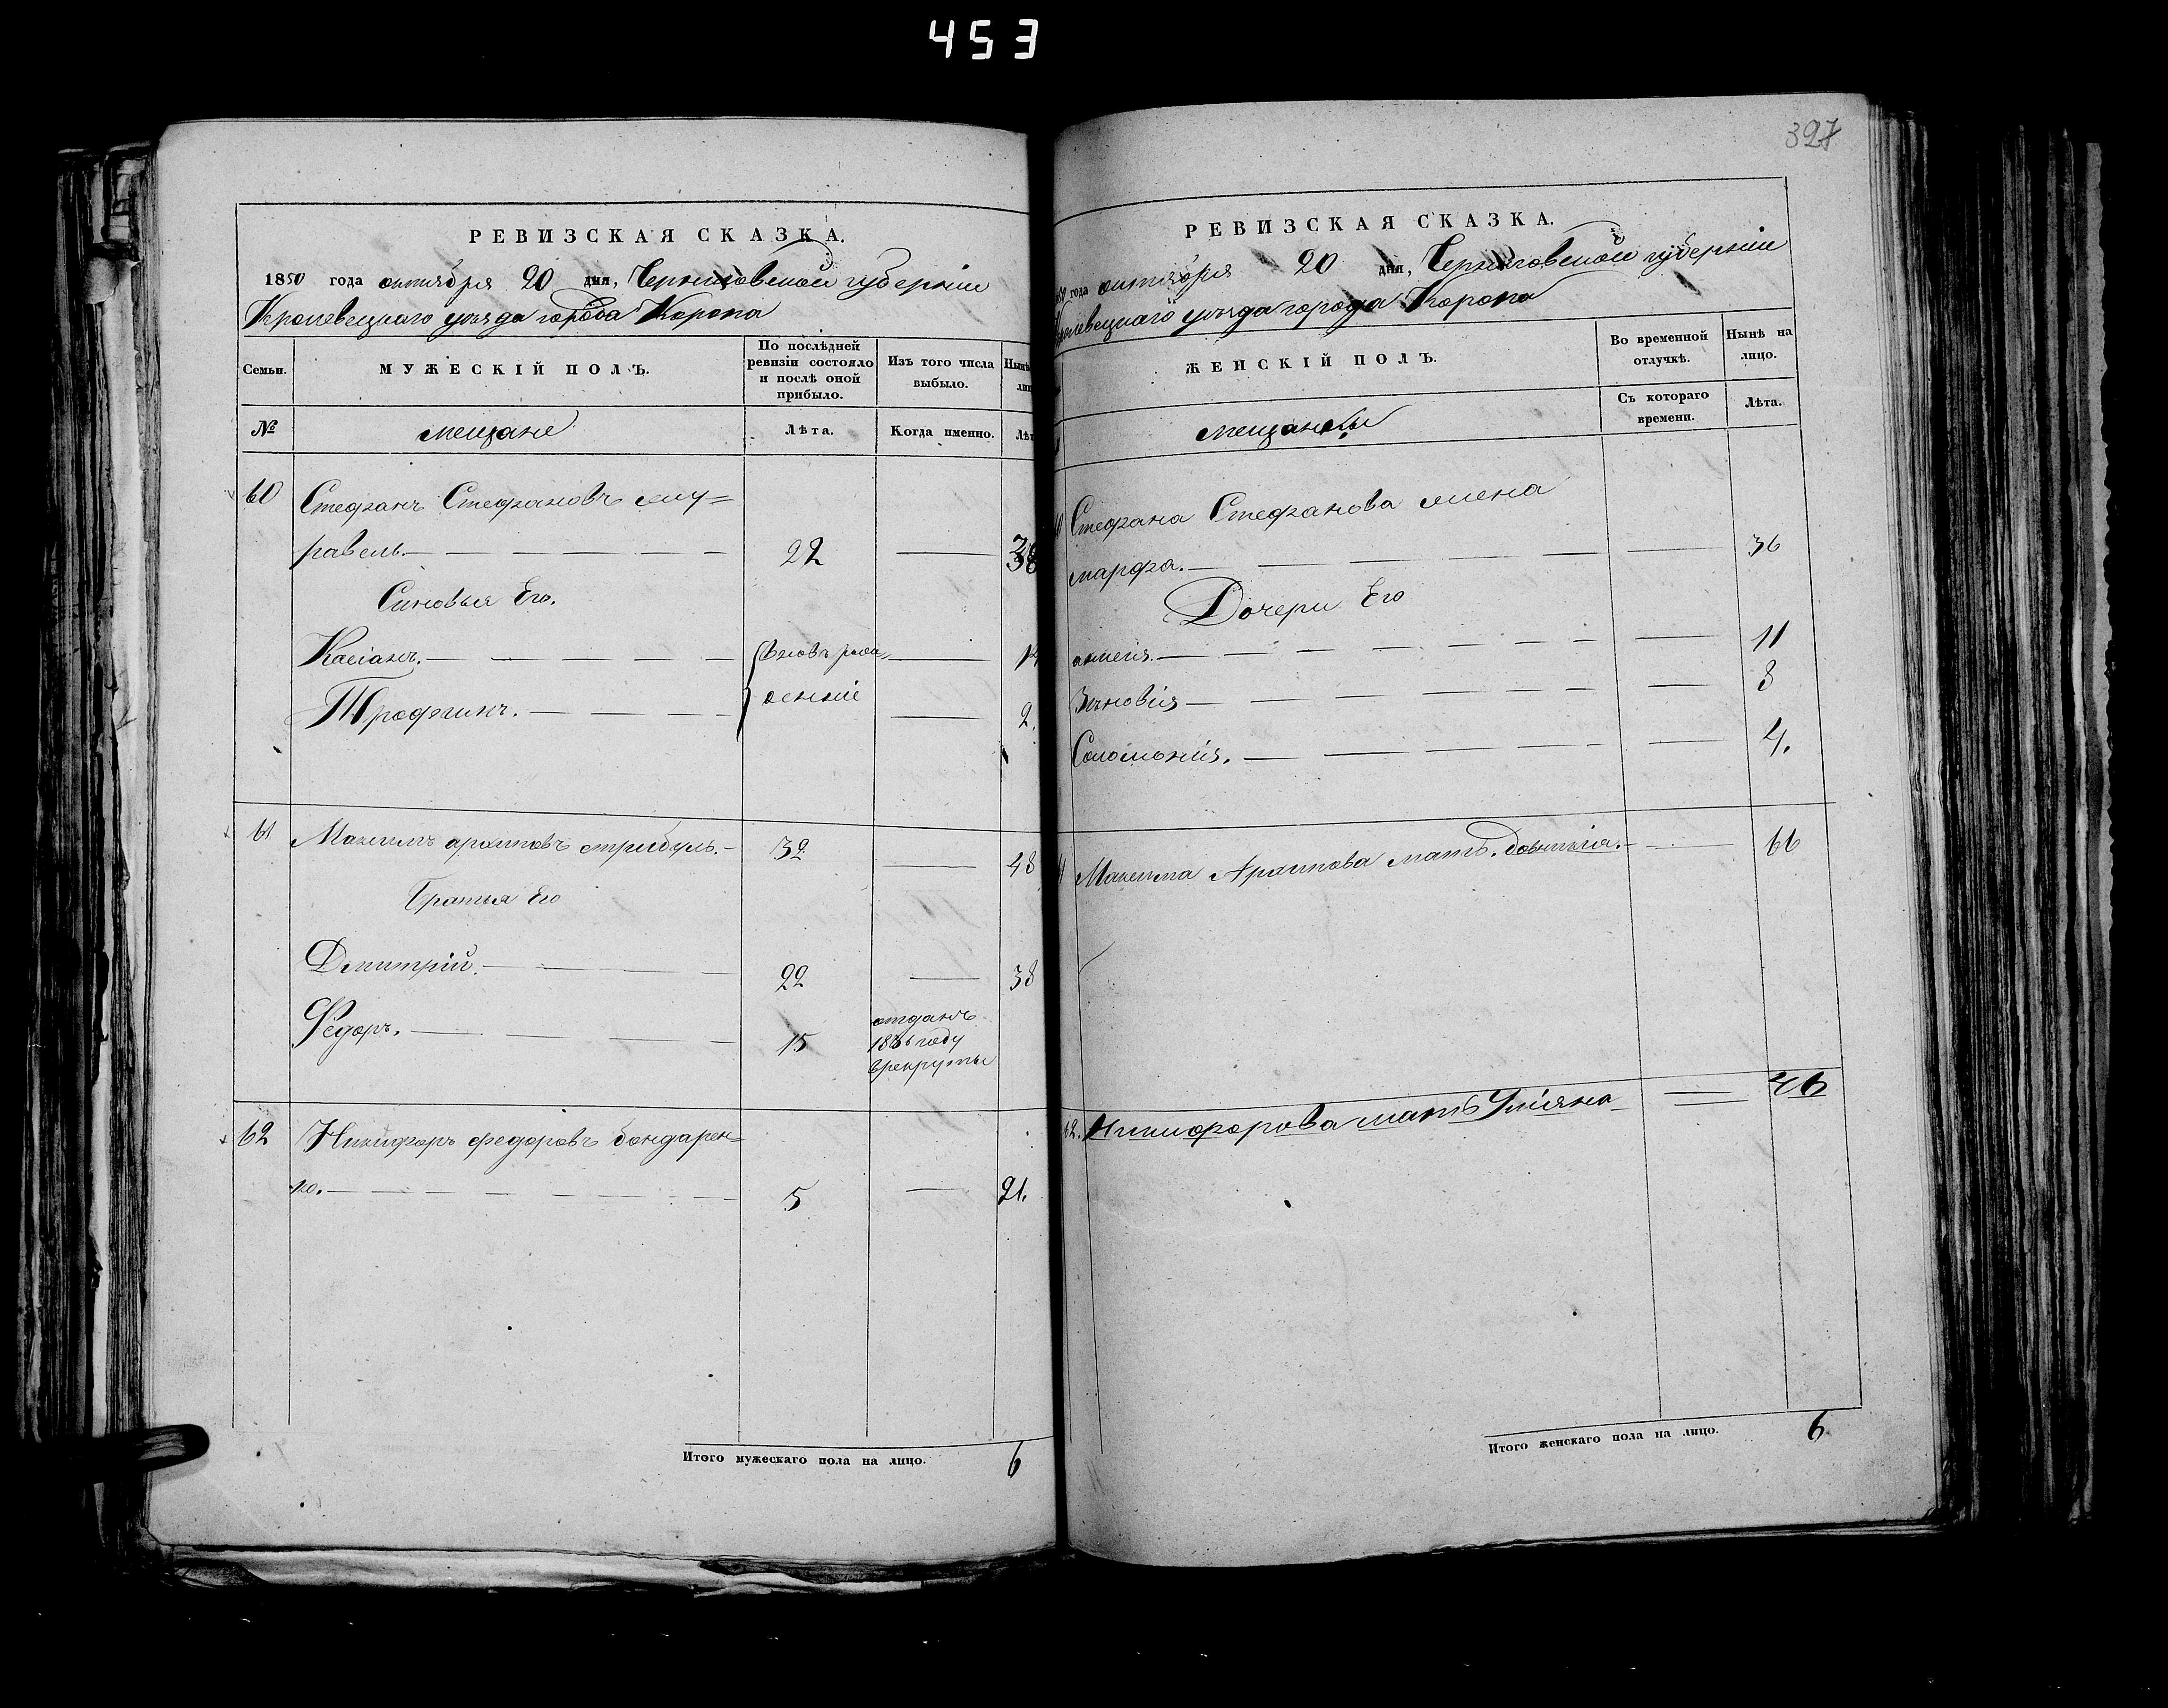 453
РЕВИЗСКАЯ СКАЗКА.
1850 года октября 20 дня, Черниговской губерніи
Кролевецкаго уѣзда города Коропа
Семьи.
МУЖЕСКІЙ ПОЛЪ.
По послѣдней ревизіи состояло и послѣ оной прибыло.
Изъ того числа выбыло.
Нынѣ
№
мещане
Лѣта.
Когда именно.
Лѣт
60
Стефанъ Стефановъ
равель. 22
Синовья Его.
Касіанъ. вновь рож
денніе
Трофимъ. 2.
61 Максимъ архиповъ стрибуль. 32 48
Братья Его
Дмитрій. 22 38
Федоръ. 15
отданъ
году
врекруты
62 Никифоръ федоровъ бондарен=
ко. 5 21.
Итого мужескаго пола на лицо. 6
327
РЕВИЗСКАЯ СКАЗКА.
года октября 20 дня, Черниговской губерніи
уѣзда города Коропа
ЖЕНСКІЙ ПОЛЪ.
Во временной отлучкѣ.
Нынѣ на лицо.
мещанки
Съ котораго времени.
Лѣта.
Стефана Стефанова жена
марфа. 36
Дочери Его
11
Зѣновія 8
Соломонія. 4.
Максима Архипова мать. 66
62. Никифорова мать Уліяна 46
Итого женскаго пола на лицо. 6